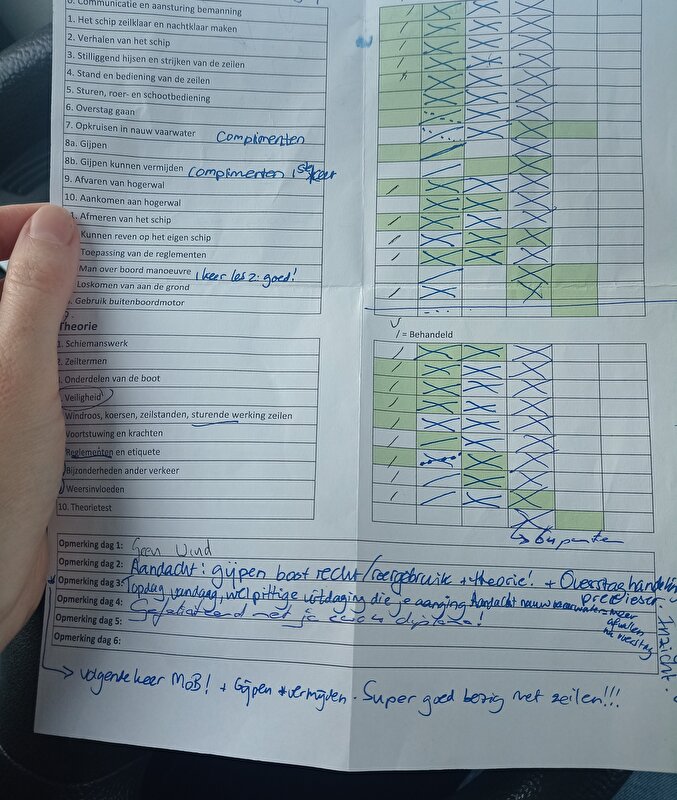 0. Communicatie en aansturing bemanning
1. Het schip zeilklaar en nachtklaar maken
2. Verhalen van het schip
3. Stilliggend hijsen en strijken van de zeilen
4. Stand en bediening van de zeilen
5. Sturen, roer- en schootbediening
6. Overstag gaan
7. Opkruisen in nauw vaarwater Complimenten
8a. Gijpen
8b. Gijpen kunnen vermijden complimenten 1ste keer
9. Afvaren van hogerwal
10. Aankomen aan hogerwal
1. Afmeren van het schip
Kunnen reven op het eigen schip
Toepassing van de reglementen
Man over boord manoeuvre 1 keer les 2: goed!
Loskomen van aan de grond
Gebruik buitenboordmotor
Theorie
/ = Behandeld
1. Schiemanswerk
2. Zeiltermen
Onderdelen van de boot
Veiligheid
Windroos, koersen, zeilstanden, sturende werking zeilen
Voortstuwing en krachten
Reglementen en etiquete
Bijzonderheden ander verkeer
Weersinvloeden
10. Theorietest
→ 6 punten
Opmerking dag 1: Geen Wind
Opmerking dag 2: Aandacht: gijpen boot recht/roergebruik + theorie! + Overstag handeling preciezer.
Opmerking dag 3: Topdag vandaag, wel pittige uitdaging die je aanging Aandacht nauw vaarwater = meer afvallen na overstag
Inzicht.
Opmerking dag 4: Gefeliciteerd met je diploma!
Opmerking dag 5:
Opmerking dag 6:
→ volgende keer MOB! + Gijpen + vermijden. Super goed bezig met zeilen!!!